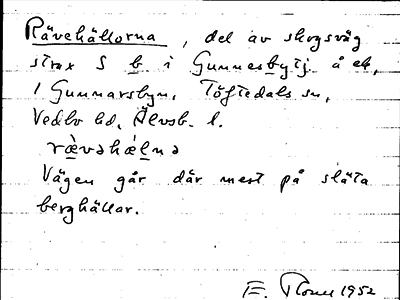 Rävehällorna, del av skogsväg
strax S b. i Gunnesbytj. å ek,
1 Gunnarsbyn, Töftedals sn,
Vedbo hd, Älvsb. l.
rɑ̀̈vəhæ̀l̠nə
Vägen går där mest på släta
berghällar.
E. 1952